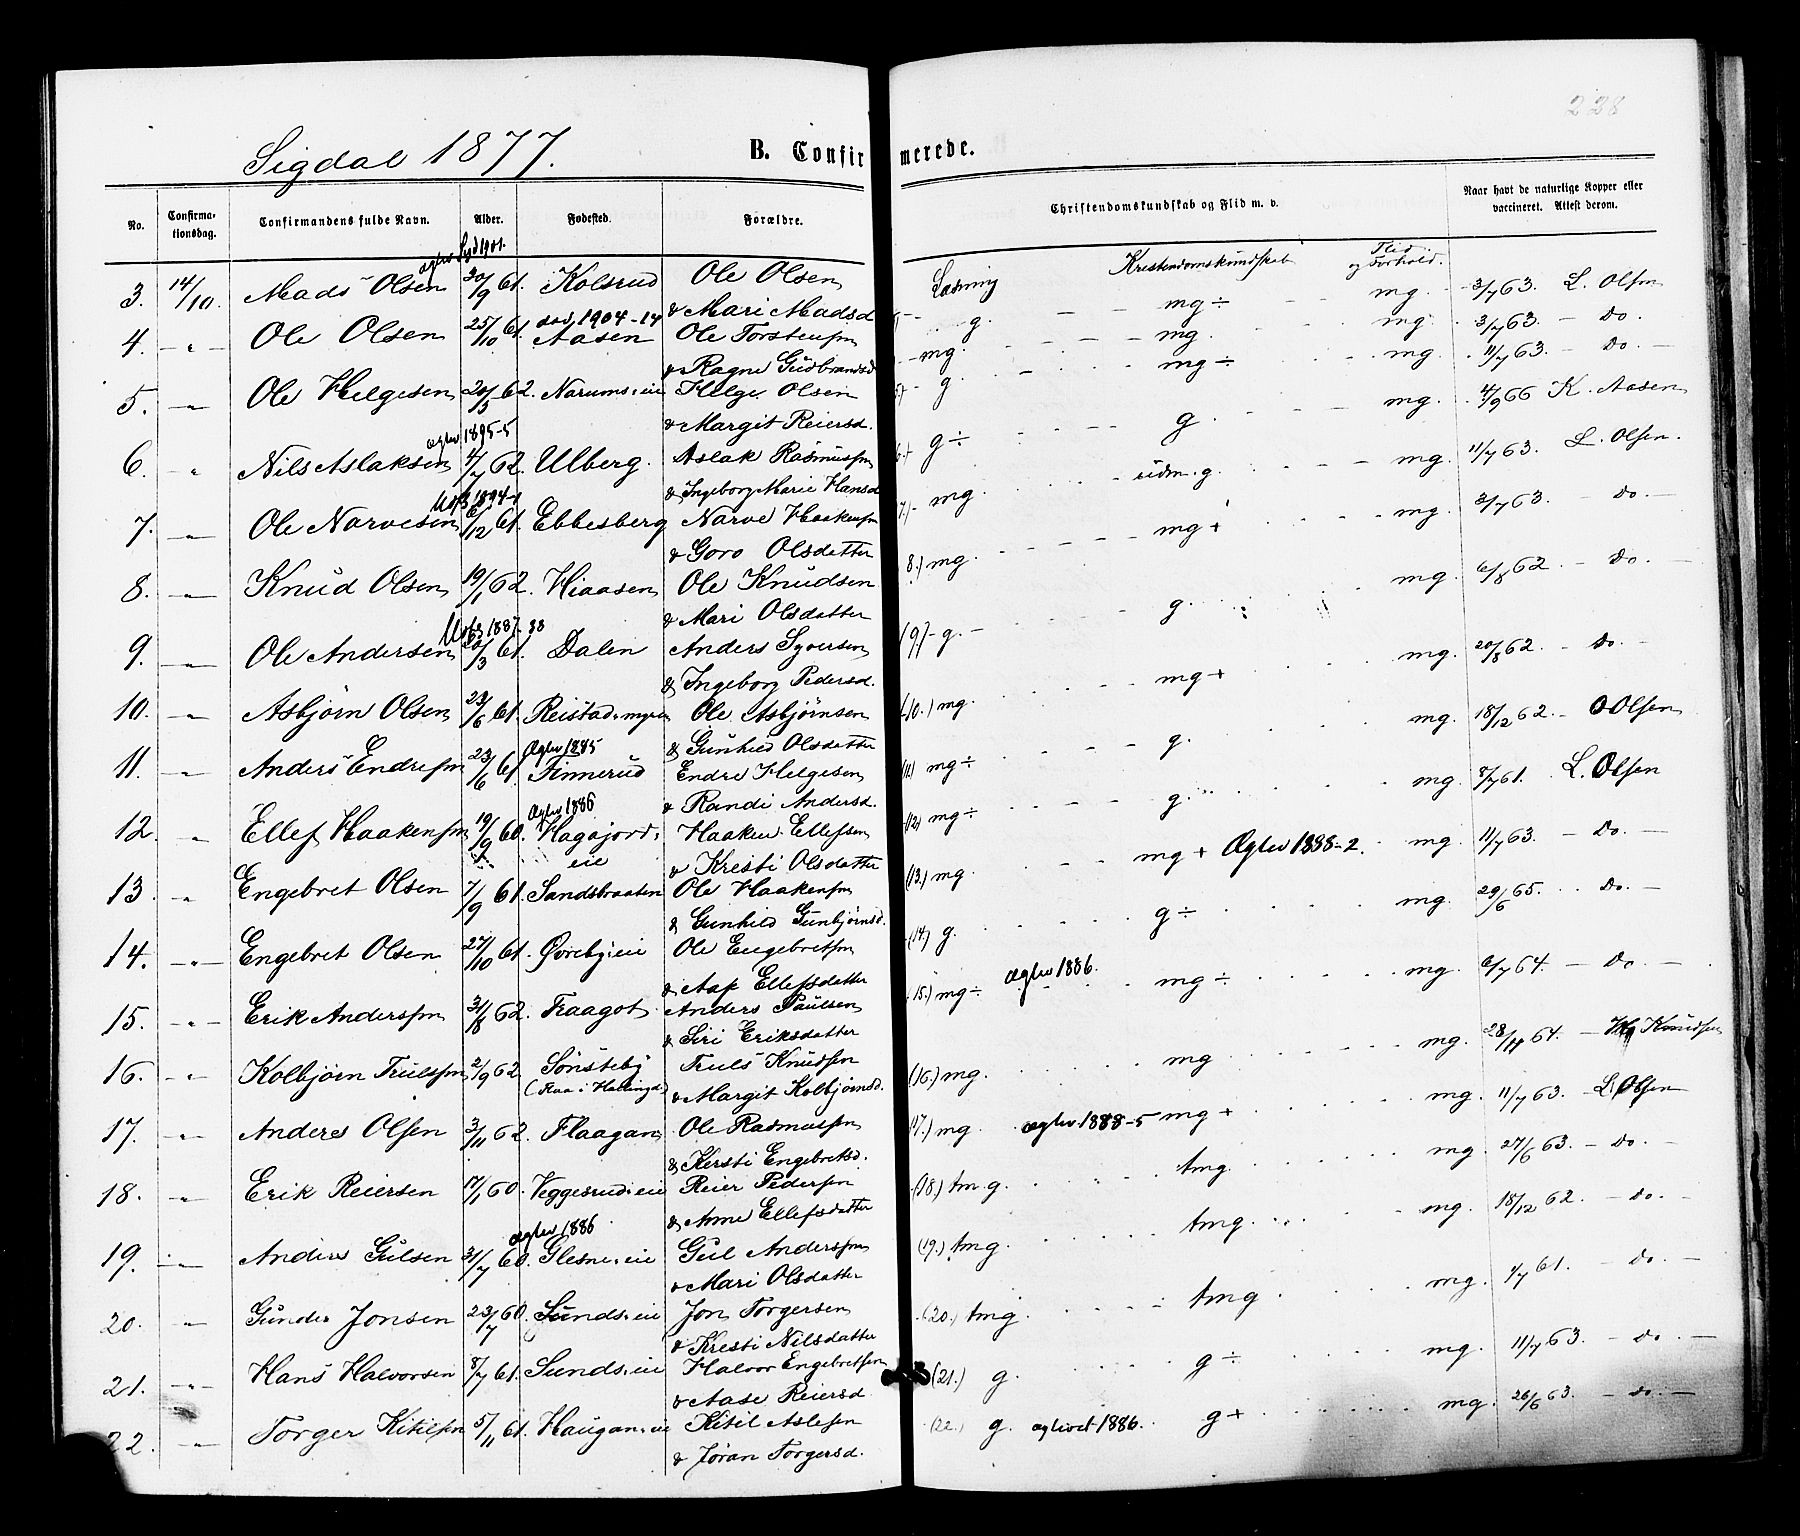 228
Sigdal 1877.
B. Confirmerede.
No. Confirmationsdag. Confirmandens fulde Navn. Alder. Fødested. Forældre. Christendomskundskab og Flid m. v. Naar havt de naturlige Kopper eller vaccineret. Attest derom.
Læsning Kristendomskundskab Flid og Forhold.
3. 14/10. Mads Olsen 30/9 61. Kolsrud Ole Olsen mg ÷ mg. 3/7 63. L. Olsen
& Mari Madsd
4. " Ole Olsen 25/10 61. død 1904-14 Aasen Ole Torstensen g. mg. mg. 3/7 63. Do.
& Ragne Gudbrandsd
5. " Ole Helgesen 20/5 62. Narums-eie Helge Olsen mg. mg ÷ mg. 11/7 63. Do.
& Margit Reiersd.
6. " Nils Aslaksen 4/7 62. Ulberg. Aslak Rasmussen g g. mg. 4/9 66 K. Aasen
& Ingeborg Marie Hansd
7. " Ole Narvesen 6/12 61. Ebbesberg Narve Haakensen g ÷ udm. g. mg. 11/7 63. L. Olsen.
& Goro Olsdatter
8. " Knud Olsen 19/1 62. Hiaasen Ole Knudsen 7.) mg mg + mg. 3/7 63. Do.
& Mari Olsdatter
9. " Ole Andersen 20/3 61. Dalen Anders Syversen 8.) mg. g. mg. 6/8 62. Do.
& Ingeborg Pedersd.
10. " Asbjørn Olsen 23/6 61. Reistad-myren Ole Asbjørnsen (9) g. mg + mg. 20/8 62. Do.
& Gunhild Olsdatter
11. " Anders Endresen 23/6 61. Aglev 1885 Finnerud Endre Helgesen (10.) mg. g. mg. 18/12 62. O Olsen
& Randi Andersd.
12. " Ellef Haakensen 19/9 60. Aglev 1886 Hagajord-eie Haaken Ellefsen (11) mg ÷ g. mg. 8/7 61. L. Olsen
& Kresti Olsdatter
13. " Engebret Olsen 7/9 61. Sandsbraaten Ole Haakensen (12) mg ÷ mg + Aglev 1888-2. mg. 11/7 63. Do.
& Gunhild Gunbjørnsd.
14. " Engebret Olsen 27/10 61. Øvreby-eie Ole Engebretsen (13.) mg. g ÷ mg. 29/6 65. Do.
& Aase Ellefsdatter
15. " Erik Anderssen 3/8 62. Fraagot Anders Paulsen (14) g. Aglev 1886. mg ÷ mg. 6/7 64. Do.
& Siri Eriksdatter
16. " Kolbjørn Trulssen 2/9 62. Sønsteby Truls Knudsen (15.) mg ÷ mg mg. 28/11 64. Knudsen
(Flaa i Hallingd.) & Margit Kolbjørnsd.
17. " Anders Olsen 3/11 62. Flaagan Ole Rasmussen (16.) mg. aglev. 1888-5 mg + mg. 11/7 63. L. Olsen
& Kersti Engebretsd.
18. " Erik Reiersen 17/1 60. Veggesrud-eie Reier Pedersen (17.) mg tmg. mg. 27/6 63. Do.
& Anne Ellefsdatter
19. " Anders Gulsen 31/7 60. aglev 1886 Glesne-eie Gul Anderssen (18.) tm.g. tmg. mg. 18/12 62. Do.
& Mari Olsdatter
20. " Gunder Jonsen 23/7 60. Sunds-eie Jon Torgersen (19.) tmg tmg mg. 1/7 61. Do.
& Kresti Nilsdatter
21. " Hans Halvorsen 8/7 61. Sunds-eie Halvor Engebretsen (20.) tmg. g ÷ mg. 11/7 63. Do.
& Aase Reiersd
22. " Torger Kitilsen 5/11 61. Haugan-eie Kitil Aslesen (21.) g. g + mg. 26/6 63. Do.
& Jøran Torgersd.
(22.) g. aglevet 1886.